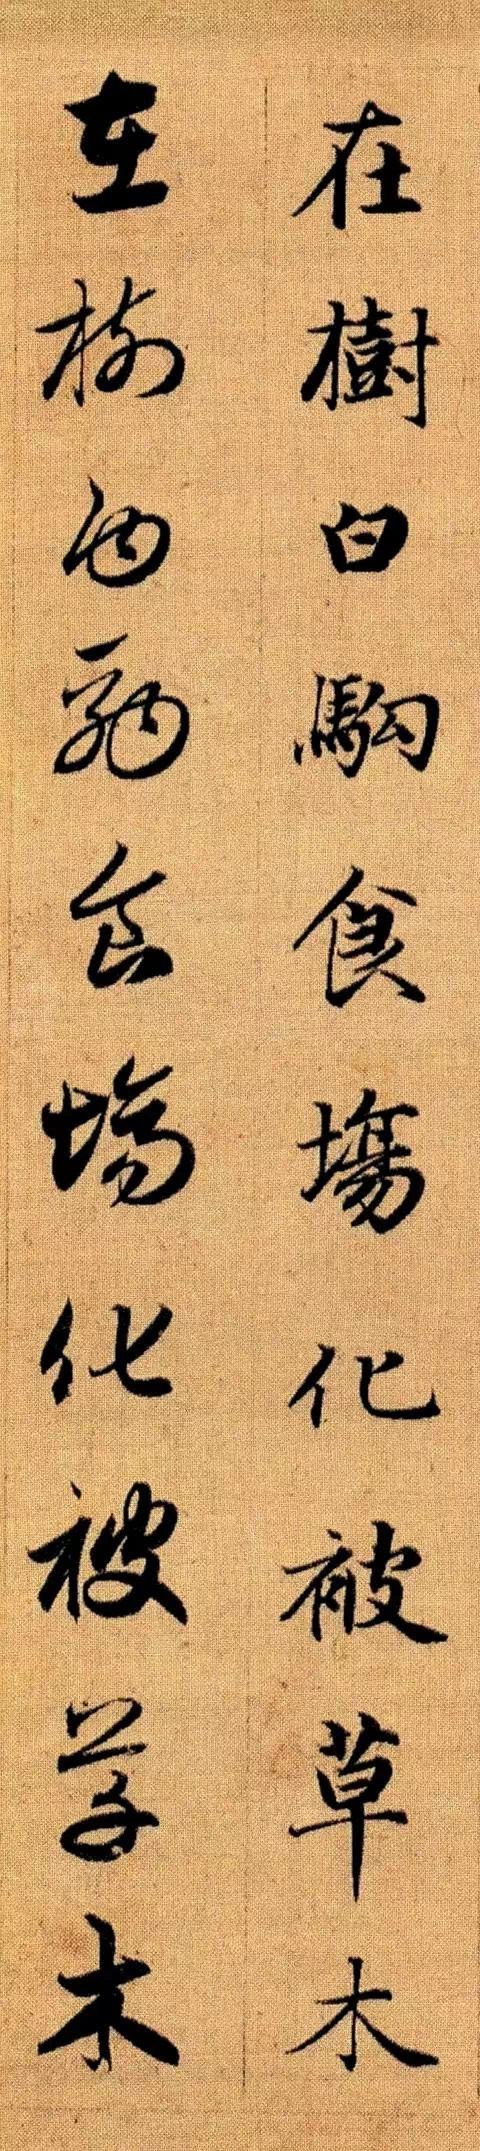 在樹白駒食場化被草木
在樹白駒食場化被草木